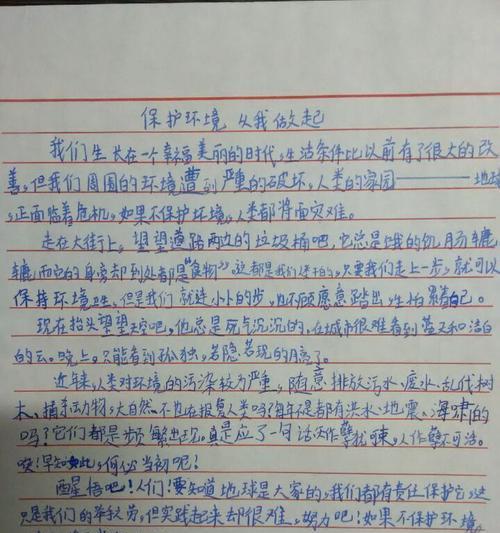 保护环境 从我做起
我们生长在一个幸福美丽的时代,生活条件比以前有了很大的改
善,但我们周围的环境遭到严重的破坏,人类的家园———地球
,正面临着危机,如果不保护环境,人类都将面灾难。
走在大街上,望望道路两边的垃圾桶吧,它总是饿的饥肠辘
辘,而它的身旁却到处都是“食物”,这都是我们干的,只要我们走上一步,就可以
保持环境卫生,但是我们就连小小的步,也不愿意踏出,生怕累着自己。
现在抬头望望天空吧,他总是死气沉沉的,在城市很难看到蓝天和洁白
的云。晚上,只能看到孤独,若隐若现的月亮了。
近年来,人类对环境的污染较为严重,随意排放污水、废水、乱伐树
木、捕杀动物,大自然不也在报复人类吗?每年不是都有洪水、地震、海啸的
吗?它们都是频繁出现。真是应了一句话天作孽犹可谏,人作孽不可活。
唉!早知如此,何必当初呢!
醒悟吧!人们!要知道地球是大家的,我们都有责任保护它,这
只是我们的举枚劳,但实践起来却很难,努力吧!如果不保护环境,